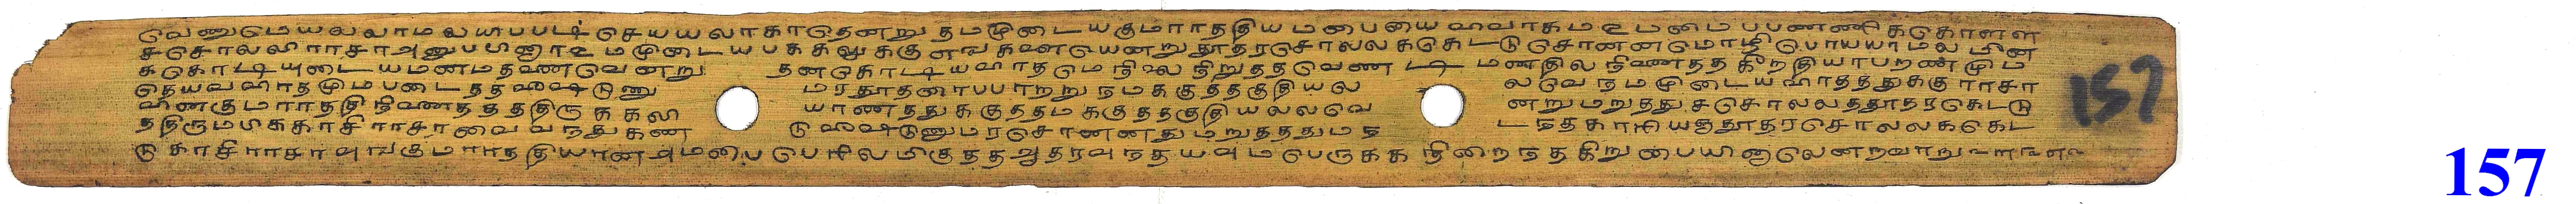 வெணுமெயலலாமல யிபபடிச செயயலாகாதெனறு தமமுடைய குமாரததியமபையை விவாகம உபமை பபணணிககொளள
சசொலலி ராசா அனுபபினார உமமுடைய பககலுககு எஙகளையெனறு தூதரசொலலககெடடு சொனனமொழி பொயயாமல மீன
ககொடியுடைய மனமதனவெனறு தனகொடிய விரதமெ நிலை நிறுததவெண டி மனதில நினைதத கீறதியாபறணமும
தெயவவிரதமும படைதத விஷடுணு மரதூதரைபபாறறு நமககுததகுதியல லவெ நமமுடைய விரதததுககு ராசா
வினகுமாரததி நினைதததிருககலி யாணததுககுததமககுததகுதியலலவெ னறு மறுதது சசொலலததூதர கெடடு
ததிருமபிககாசிராசாவைவநதுகண டு விஷடுணுமர சொனனது மறுதததும ந டநதகாரியதததூதர சொலலககெட
டு காசிராசாவுஙகுமாரததியான அமபைபெரில மிகுதத ஆதரவுநதயவும பெருகக நிறைநத கிறுபையினாலெனறவாறு
157
157